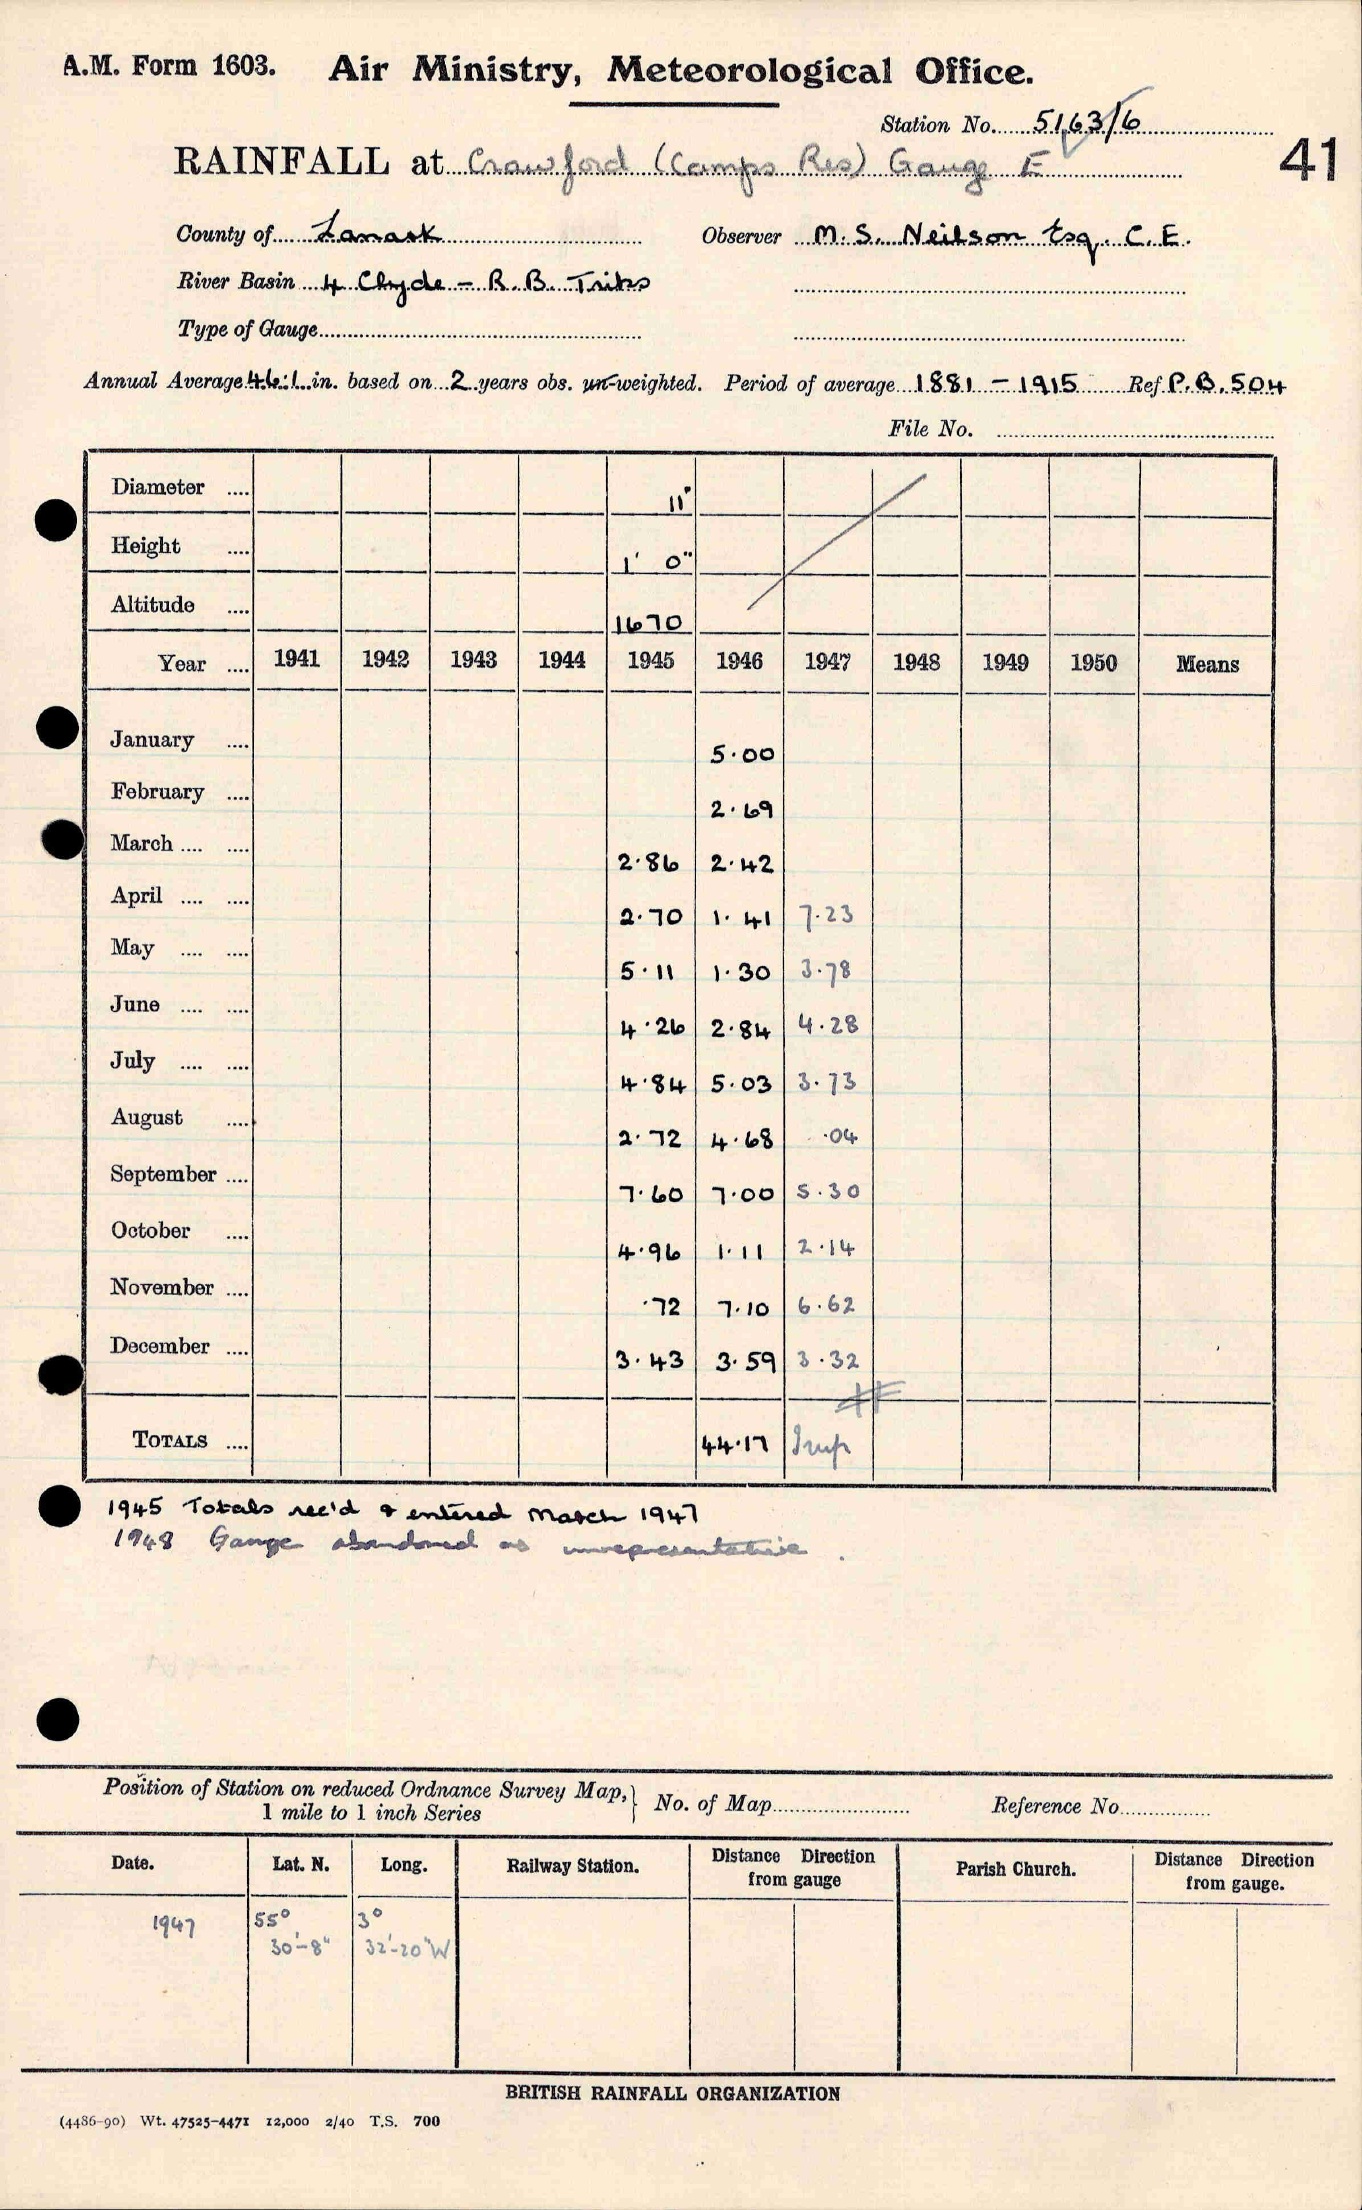 A.M. Form 1603. Air Ministry, Meteorological Office.
Station No. 5163/6
RAINFALL at Crawford (Camps Res) Gauge E
41
County of Lanark Observer M. S. Neilson Esq. C.E.
River Basin 4 Clyde - R.B. Tribs
Type of Gauge
Annual Average 46.1 in. based on 2 years obs. un-weighted. Period of average 1881 - 1915 Ref P.B. 504
File No.
Diameter .... 11"
Height .... 1' 0"
Altitude .... 1670
Year .... 1941 1942 1943 1944 1945 1946 1947 1948 1949 1950 Means
January .... 5.00
February .... 2.69
March .... .... 2.86 2.42
April .... .... 2.70 1.41 7.23
May .... .... 5.11 1.30 3.78
June .... .... 4.26 2.84 4.28
July .... .... 4.84 5.03 3.73
August .... 2.72 4.68 .04
September .... 7.60 7.00 5.30
October .... 4.96 1.11 2.14
November .... .72 7.10 6.62
December .... 3.43 3.59 3.32
TOTALS .... 44.17 Imp
1945 Totals rec'd & entered March 1947
1948 Gauge abandoned as unrepresentative.
Position of Station on reduced Ordnance Survey Map, } No. of Map Reference No.
1 mile to 1 inch Series
Date. Lat. N. Long. Railway Station. Distance Direction from gauge Parish Church. Distance Direction from gauge.
1947 55° 3°
30'-8" 32'-20" W
BRITISH RAINFALL ORGANIZATION
(4486-90) Wt. 47525-4471 12,000 2/40 T.S. 700